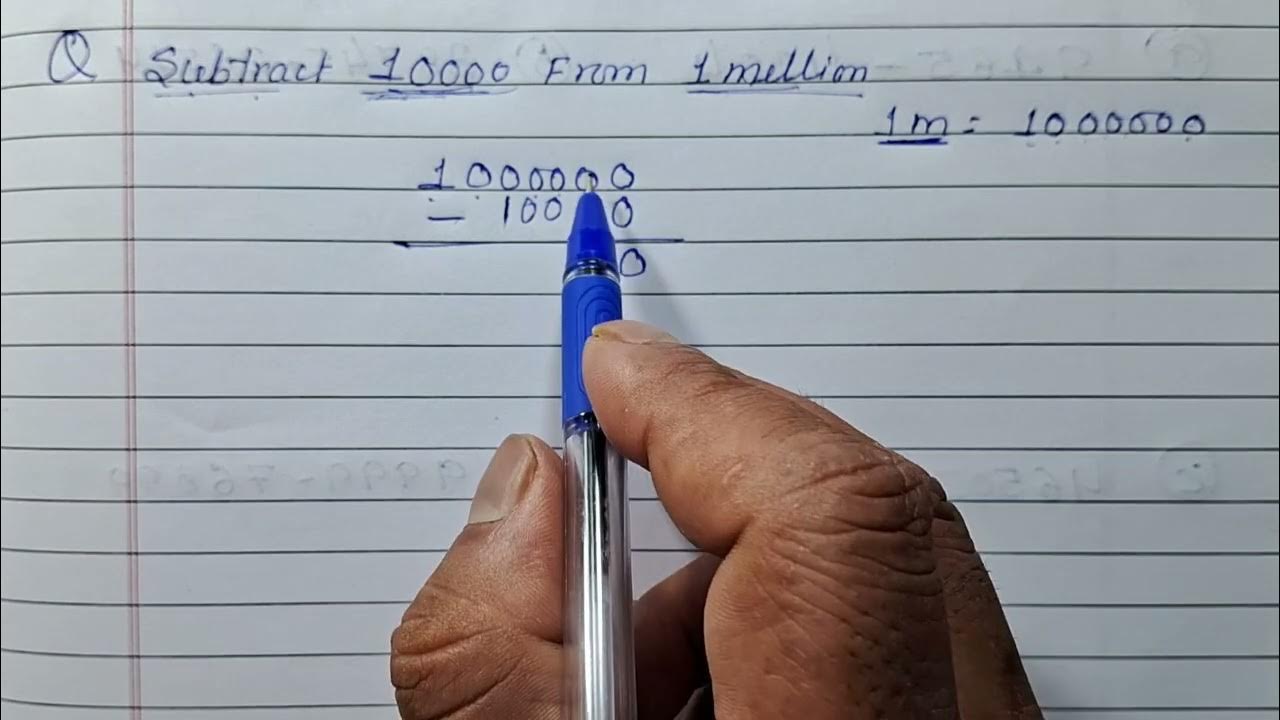 Q Subtract 10000 From 1 mellion
1m = 1000000
1000000
- 100 0
0